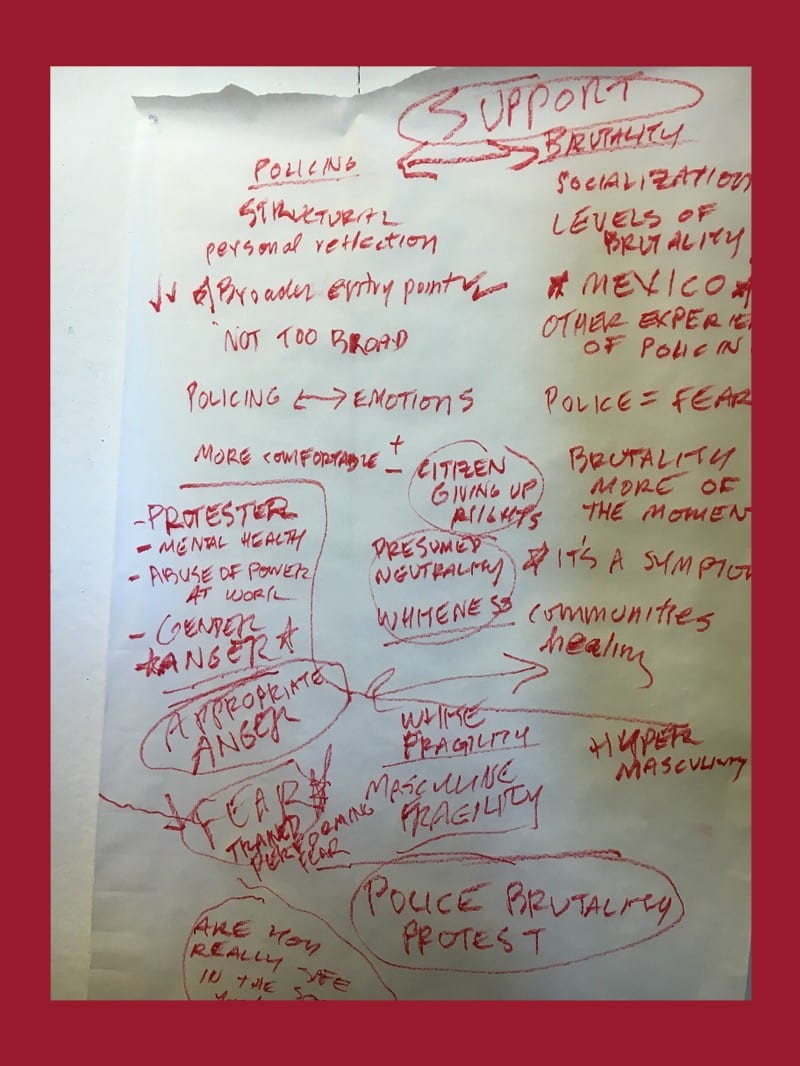 SUPPORT
POLICING
BRUTALITY
STRUCTURAL
personal reflection
Broader entry point
NOT TOO BROAD
POLICING ↔ EMOTIONS
MORE COMFORTABLE + −
- PROTESTER
- MENTAL HEALTH
- ABUSE OF POWER
AT WORK
- GENDER
ANGER
APPROPRIATE
ANGER
FEAR
PERFORMING
FEAR
ARE YOU
REALLY SAFE
IN THE
CITIZEN
GIVING UP
RIGHTS
PRESUMED
NEUTRALITY
WHITENESS
WHITE
FRAGILITY
MASCULINE
FRAGILITY
POLICE BRUTALITY
PROTEST
SOCIALIZATION
LEVELS OF
BRUTALITY
MEXICO
OTHER EXPERIE
OF POLICIN
POLICE = FEAR
BRUTALITY
MORE OF
THE MOMENT
IT'S A SYMPTO
communities
healing
HYPER
MASCULINITY